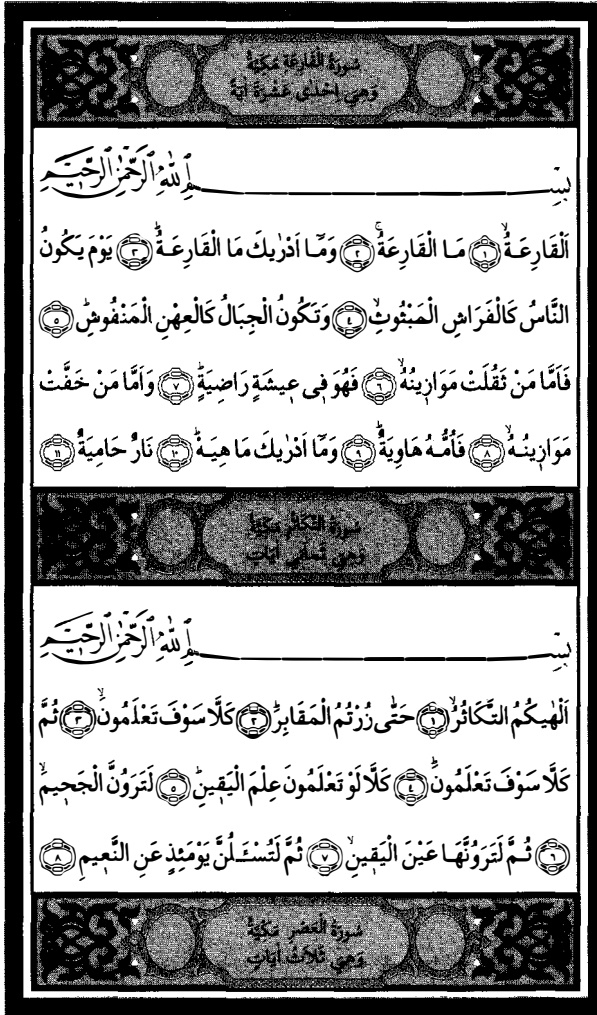 سُورَةُ الْقَارِعَةِ مَكِّيَّةٌ
وَهِيَ اِحْدٰى عَشْرَةَ اٰيَةً
بِسْمِ اللّٰهِ الرَّحْمٰنِ الرَّحِيمِ
اَلْقَارِعَةُۙ ﴿١﴾ مَا الْقَارِعَةُۚ ﴿٢﴾ وَمَٓا اَدْرٰيكَ مَا الْقَارِعَةُۜ ﴿٣﴾ يَوْمَ يَكُونُ
النَّاسُ كَالْفَرَاشِ الْمَبْثُوثِۙ ﴿٤﴾ وَتَكُونُ الْجِبَالُ كَالْعِهْنِ الْمَنْفُوشِۜ ﴿٥﴾
فَاَمَّا مَنْ ثَقُلَتْ مَوَازٖينُهُۙ ﴿٦﴾ فَهُوَ فٖى عٖيشَةٍ رَاضِيَةٍۜ ﴿٧﴾ وَاَمَّا مَنْ خَفَّتْ
مَوَازٖينُهُۙ ﴿٨﴾ فَاُمُّهُ هَاوِيَةٌۜ ﴿٩﴾ وَمَٓا اَدْرٰيكَ مَا هِيَهْۜ ﴿١٠﴾ نَارٌ حَامِيَةٌ ﴿١١﴾
سُورَةُ التَّكَاثُرِ مَكِّيَّةٌ
وَهِيَ ثَمَانِي اٰيَاتٍ
بِسْمِ اللّٰهِ الرَّحْمٰنِ الرَّحِيمِ
اَلْهٰيكُمُ التَّكَاثُرُۙ ﴿١﴾ حَتّٰى زُرْتُمُ الْمَقَابِرَۜ ﴿٢﴾ كَلَّا سَوْفَ تَعْلَمُونَۙ ﴿٣﴾ ثُمَّ
كَلَّا سَوْفَ تَعْلَمُونَۜ ﴿٤﴾ كَلَّا لَوْ تَعْلَمُونَ عِلْمَ الْيَقٖينِۜ ﴿٥﴾ لَتَرَوُنَّ الْجَحٖيمَۙ
﴿٦﴾ ثُمَّ لَتَرَوُنَّهَا عَيْنَ الْيَقٖينِۙ ﴿٧﴾ ثُمَّ لَتُسْـَٔلُنَّ يَوْمَئِذٍ عَنِ النَّعٖيمِ ﴿٨﴾
سُورَةُ الْعَصْرِ مَكِّيَّةٌ
وَهِيَ ثَلَاثُ اٰيَاتٍ